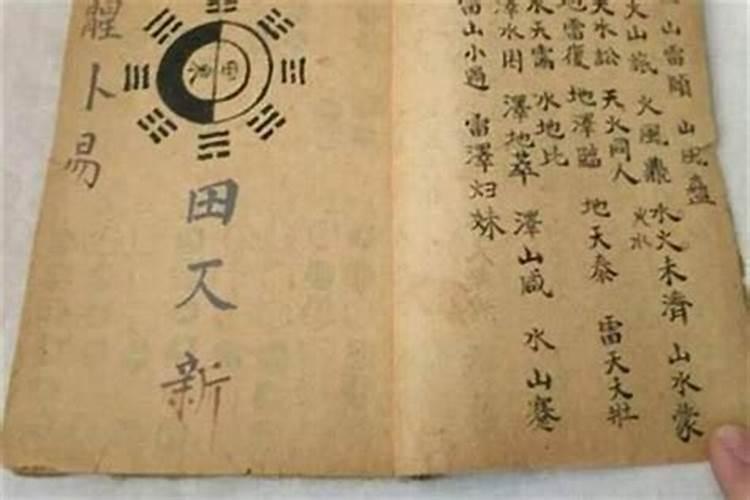 山雷頤 山風蠱
火山旅 火風鼎 水火未濟 山水蒙
火水
天水訟 天火同人 地天泰 雷天大壯
地雷復 地澤臨
水天需 水地比
澤水困 澤地萃 澤山咸 水山蹇
雷山小過 雷澤归妹
田又新
卜易